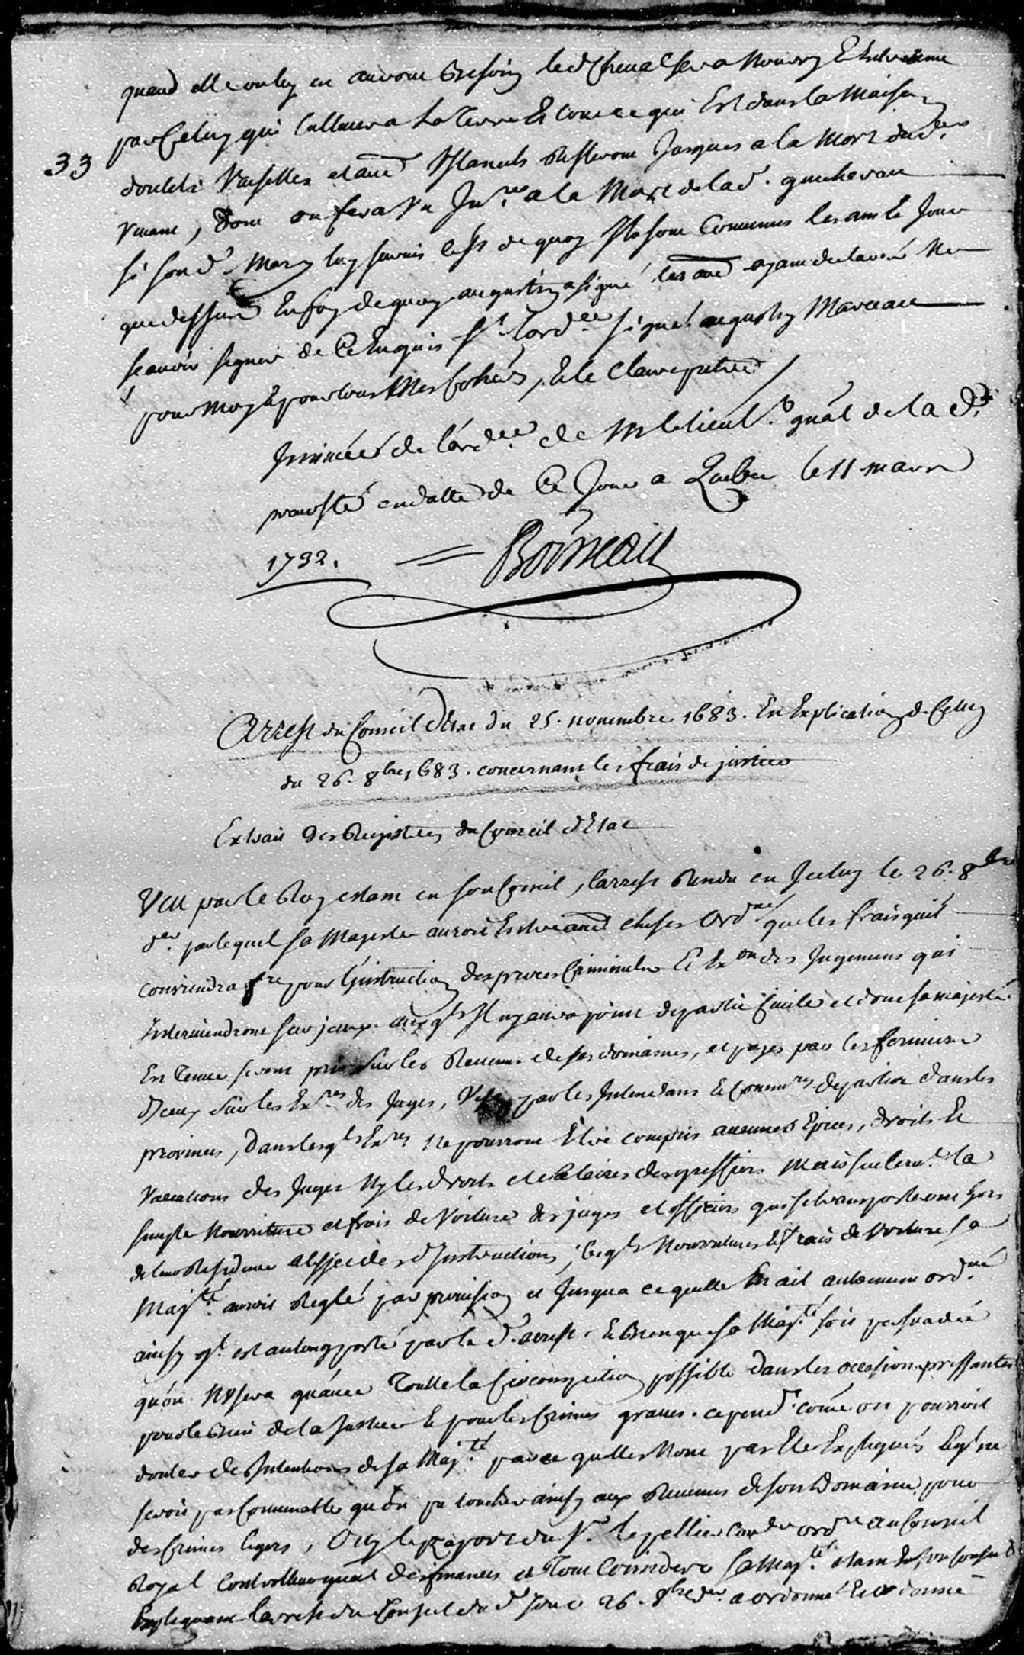 quand elle voulu en auront besoin led. cheval sera nourry Et hiverné
par Celuy qui Cultivera La Terre Et tout ce qui Est dans la Maison
33
doutils Vaiselles et autres Ustancils resteront Jusques a la Mort dud.
vivant, dont on fera Un Inre. a la Mort de lad.
si son d. Mary luy survis de quoy Ils sont Convenus les an Et Jour
que dessus En foy de quoy augustin a signé les autres ayant declaré Ne
scavoir signer de Ce Enquis st. Lord.ce signé augustin Marceau
pour moy Et pour tous Mes Cohers, Et le Claire prêtre
Insinué de l'ord.ce de M le lieut. gnâl de la d.
prevosté en datte de Ce Jour a Quebec le 11 mars
1732. = Boisseau
Arrest du Conseil d'Etat du 25. novembre 1683. En Explication de Celuy
du 26. 8bre 1683. concernant les frais de justice
Extrait des Registres du Conseil d'Etat
Veu par le Roy estant en son Conseil, larrest Rendu en Iceluy le 26. 8bre
der. par lequel sa Majesté auroit Entre autres choses Ordné que les frais quil
conviendra fre pour L'instruction des procès Criminels Et Exon des Jugemens qui
Interviendront sur jceux auxqls Il ny aura point de partie Civile et dont sa majesté
Est Tenue seront pris sur les Revenus de ses domaines, et payés par les fermiers
D'Iceux sur les Exres des Juges, Visés par les Intendans Et Commres departis dans les
provinces, dans lesqls Exres Ne pourront Etre compris aucunes Epices, droits Et
Vacations des Juges Ny les droits et salaires des greffiers Mais seulemt. la
simple Nourriture et frais de Voiture des juges et officiers qui se transporteront hors
de leur Residence a l'effet des d. Instructions, lesqls Nourritures Et frais de Voiture sa
Majté. auroit Reglé par provision et Jusqua ce quelle En ait autrement ordné
ainsy ql. est au long porté par le d. arrest. Et Bien que sa Majté. soit persuadée
qu'on N'usera qu'avec Toutte la Circonspection possible dans les occasions pressantes
pour le Bien de la Justice Et pour les Crimes graves. cepend. côme on pourroit
douter des Intentions de sa Majté. parce quelles N'ont pas Eté Expliquées Et ql ne
seroit pas Convenable qu'on pu toucher ainsy aux Revenus de son Domaine pour
des Crimes legers, Ouy le Rapport du Sr. le pelletier Conser ordre au Conseil
Royal Controlleur gnâl des finances et Tout Consideré sa Majté. etant En son Conseil
Expliquant larrest du Conseil du d. Jour 26. 8bre der. a ordonné Et ordonne